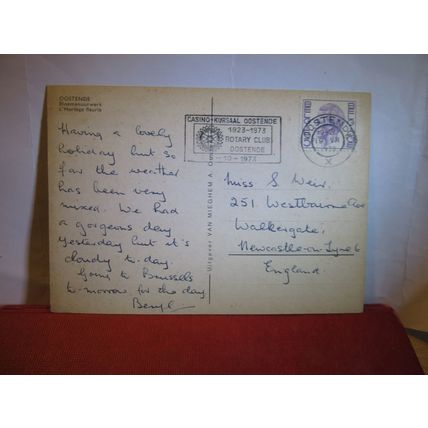 OOSTENDE
Bloemenuurwerk
L'Horloge fleurie
Having a lovely
holiday but so
far the weather
has been very
mixed. We had
a gorgeous day
yesterday but it's
cloudy to-day.
Going to Brussels
to-morrow for the day.
Beryl
Uitgever VAN MIEGHEM A.
CASINO-KURSAAL OOSTENDE
1923-1973
ROTARY CLUB
OOSTENDE
-10-1973
OOSTENDE
X
Miss S. Weir.
251 Westbourne Ave
Walkergate,
Newcastle-on-Tyne 6
England.